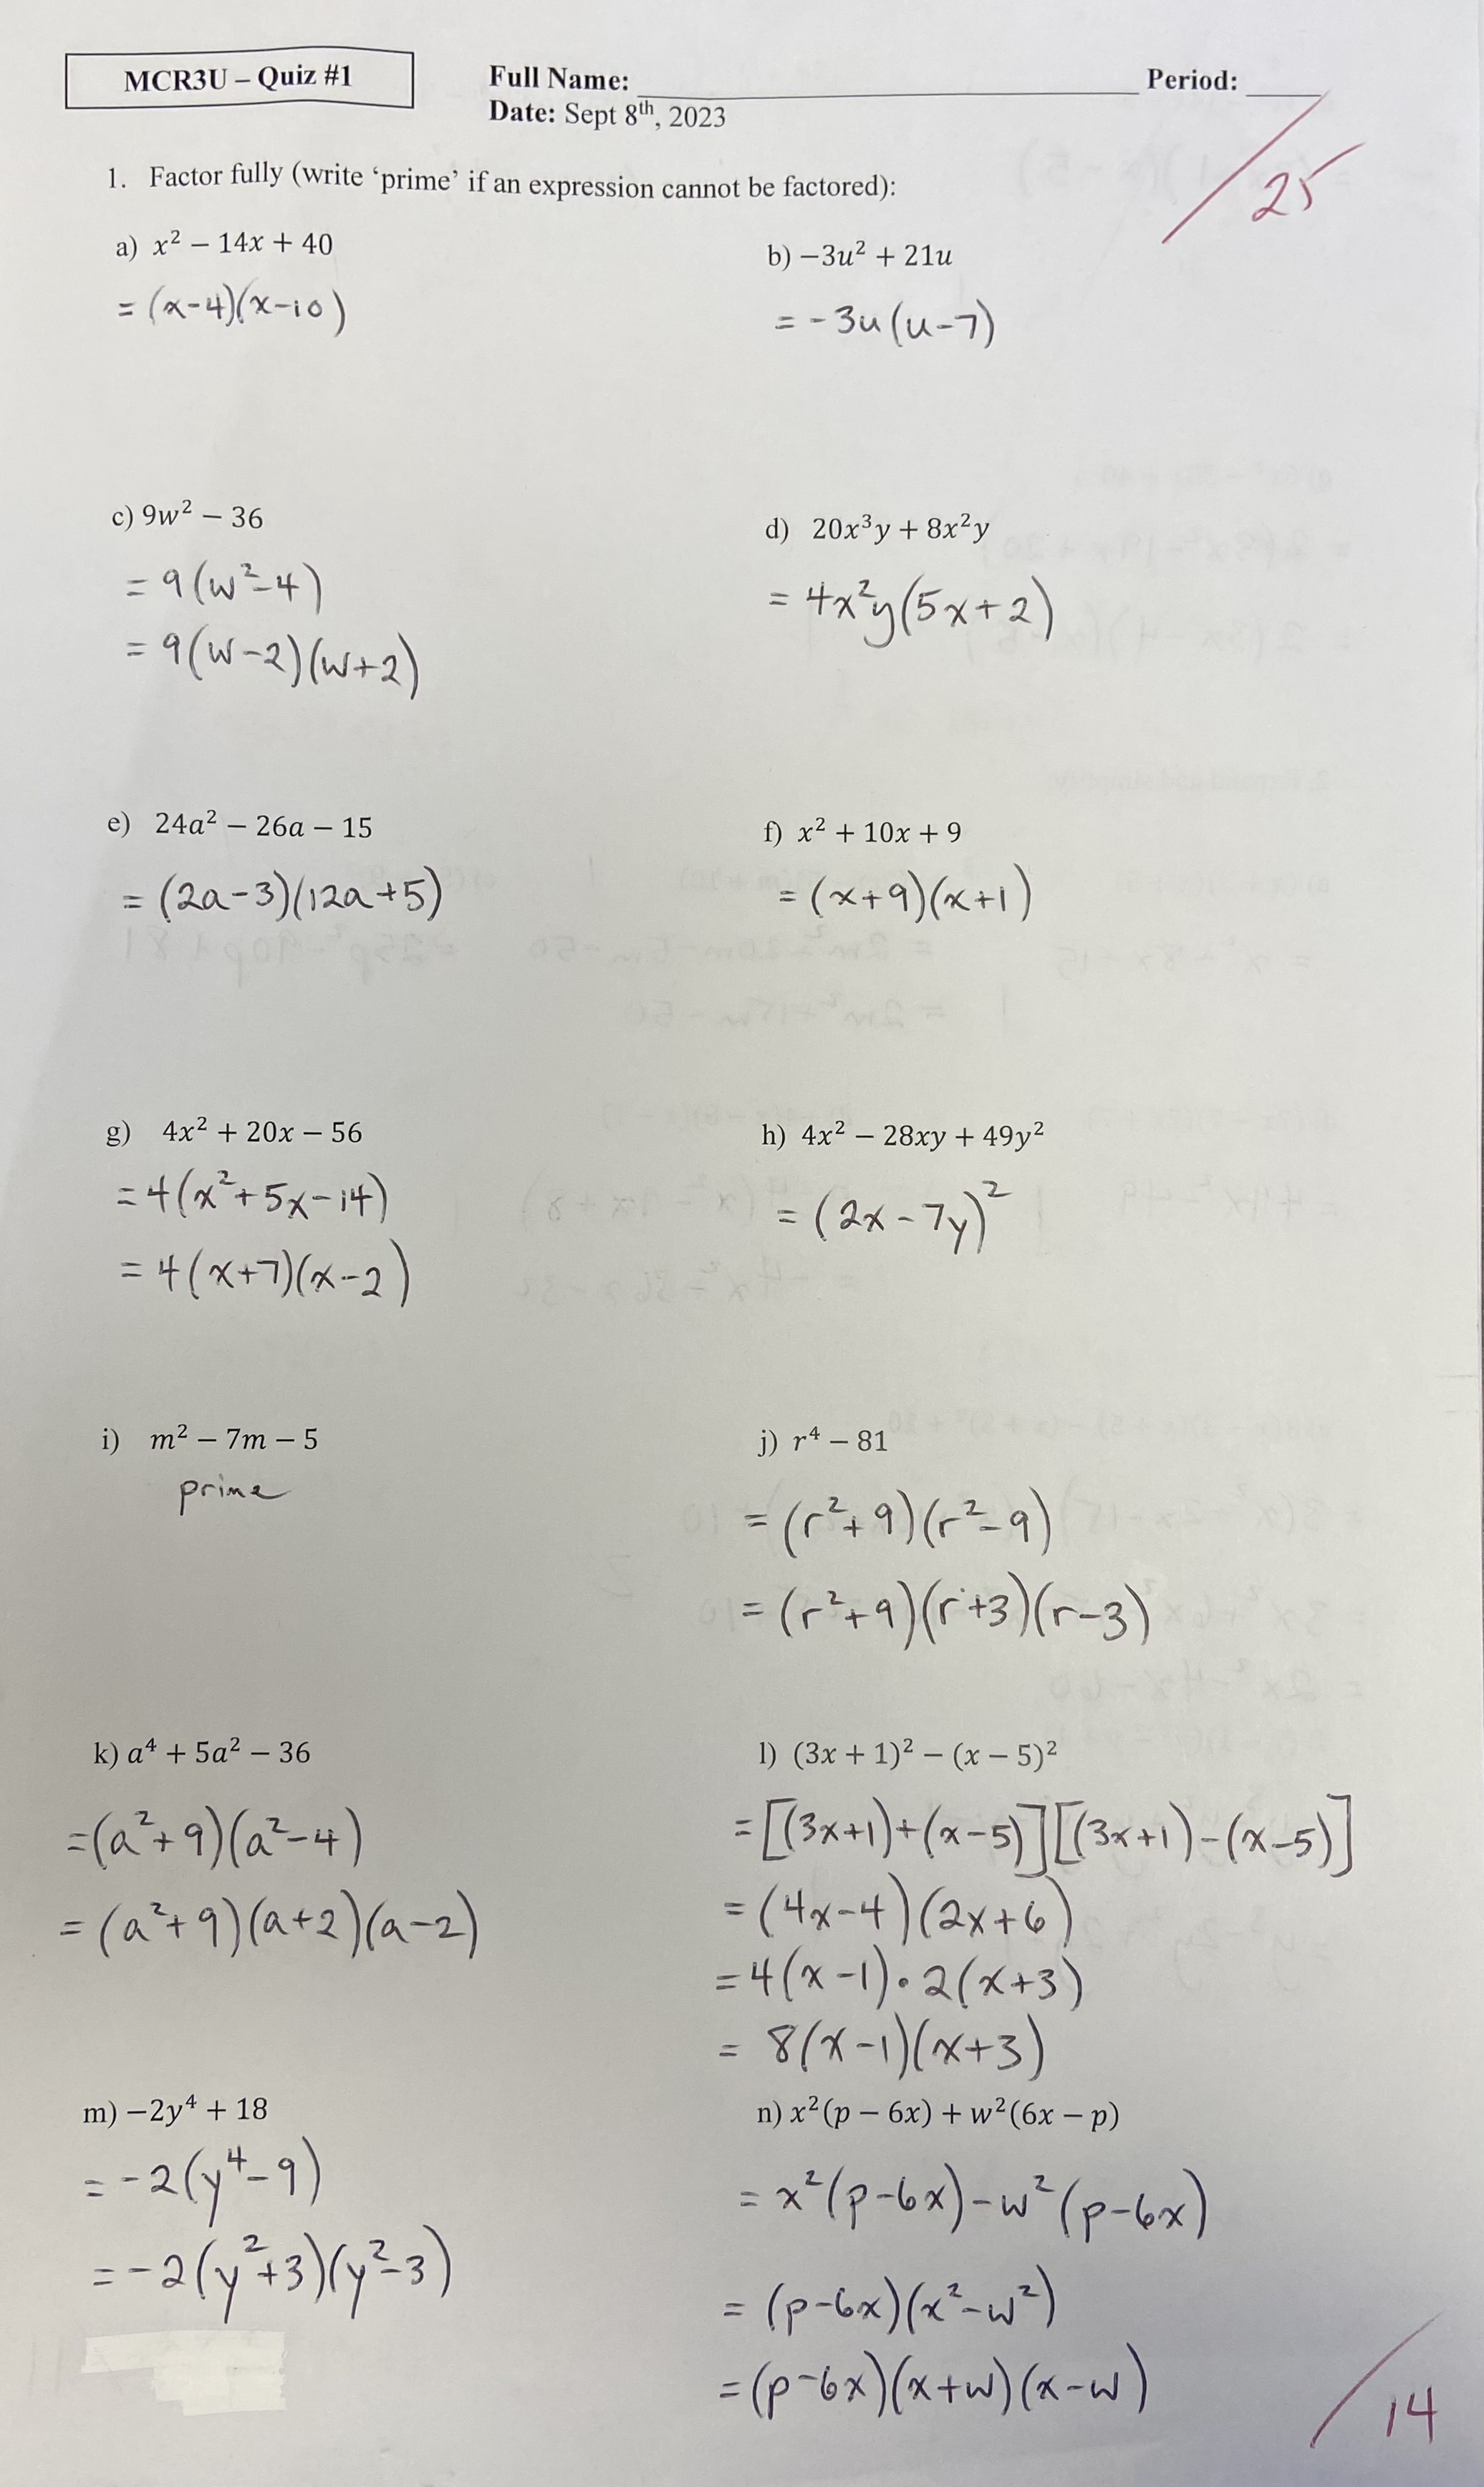 MCR3U – Quiz #1
Full Name: ____________________ Period: _____
Date: Sept 8th, 2023
/25
1. Factor fully (write ‘prime’ if an expression cannot be factored):
a) x² − 14x + 40
= (x-4)(x-10)
b) −3u² + 21u
= -3u(u-7)
c) 9w² − 36
= 9(w²-4)
= 9(w-2)(w+2)
d) 20x³y + 8x²y
= 4x²y(5x+2)
e) 24a² − 26a − 15
= (2a-3)(12a+5)
f) x² + 10x + 9
= (x+9)(x+1)
g) 4x² + 20x − 56
= 4(x²+5x-14)
= 4(x+7)(x-2)
h) 4x² − 28xy + 49y²
= (2x-7y)²
i) m² − 7m − 5
prime
j) r⁴ − 81
= (r²+9)(r²-9)
= (r²+9)(r+3)(r-3)
k) a⁴ + 5a² − 36
= (a²+9)(a²-4)
= (a²+9)(a+2)(a-2)
l) (3x + 1)² − (x − 5)²
= [(3x+1)+(x-5)][(3x+1)-(x-5)]
= (4x-4)(2x+6)
= 4(x-1)•2(x+3)
= 8(x-1)(x+3)
m) −2y⁴ + 18
= -2(y⁴-9)
= -2(y²+3)(y²-3)
n) x²(p − 6x) + w²(6x − p)
= x²(p-6x)-w²(p-6x)
= (p-6x)(x²-w²)
= (p-6x)(x+w)(x-w)
/14